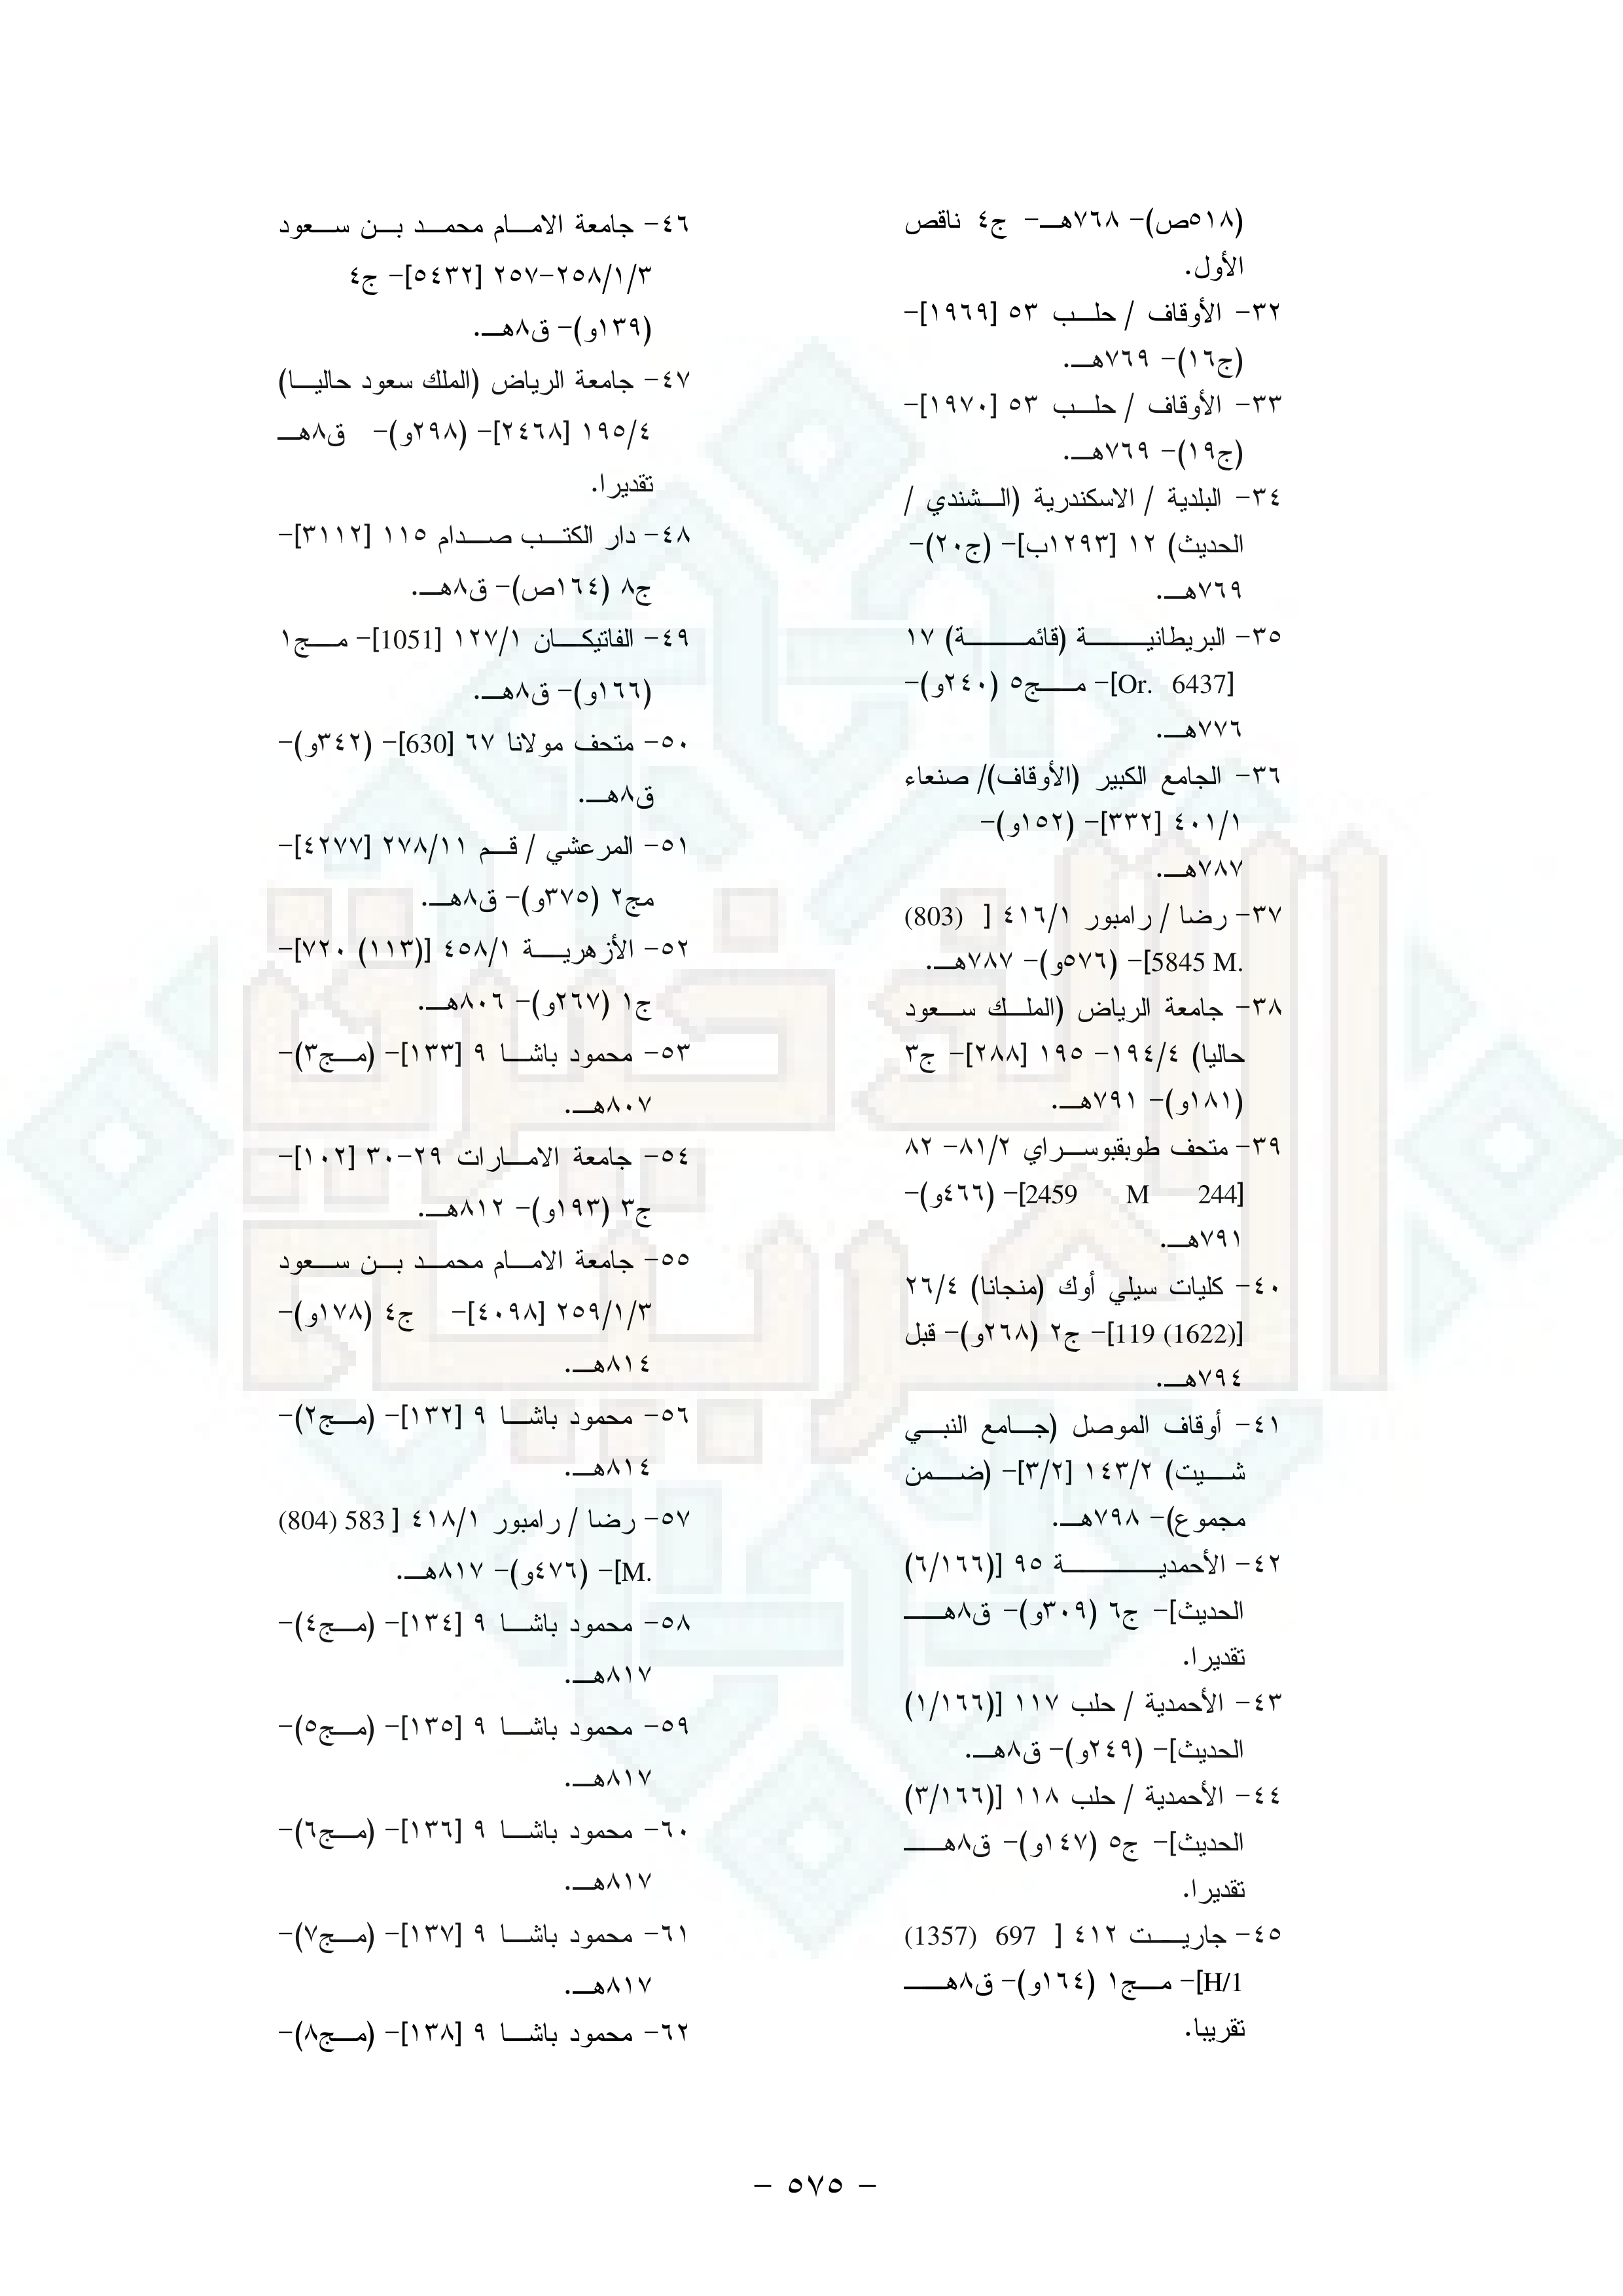 (٥١٨ص)- ٧٦٨هــ- ج٤ ناقص
الأول.
٣٢- الأوقاف / حلـــب ٥٣ [١٩٦٩]-
(ج١٦)- ٧٦٩هــ.
٣٣- الأوقاف / حلـــب ٥٣ [١٩٧٠]-
(ج١٩)- ٧٦٩هــ.
٣٤- البلدية / الاسكندرية (الــشندي /
الحديث) ١٢ [١٢٩٣ب]- (ج٢٠)-
٧٦٩هــ.
٣٥- البريطانيـــــــة (قائمـــــــة) ١٧
[Or. 6437]- مـــج٥ (٢٤٠و)-
٧٧٦هــ.
٣٦- الجامع الكبير (الأوقاف)/ صنعاء
٤٠١/١ [٣٣٢]- (١٥٢و)-
٧٨٧هــ.
٣٧- رضا / رامبور ٤١٦/١ [ (803)
5845 M.]- (٥٧٦و)- ٧٨٧هــ.
٣٨- جامعة الرياض (الملــك ســعود
حاليا) ١٩٤/٤- ١٩٥ [٢٨٨]- ج٣
(١٨١و)- ٧٩١هــ.
٣٩- متحف طوبقبوســراي ٨١/٢- ٨٢
[2459 M 244]- (٤٦٦و)-
٧٩١هــ.
٤٠- كليات سيلي أوك (منجانا) ٢٦/٤
[119 (1622)]- ج٢ (٢٦٨و)- قبل
٧٩٤هــ.
٤١- أوقاف الموصل (جــامع النبــي
شـــيت) ١٤٣/٢ [٣/٢]- (ضـــمن
مجموع)- ٧٩٨هــ.
٤٢- الأحمديـــــــــــة ٩٥ [(٦/١٦٦)
الحديث]- ج٦ (٣٠٩و)- ق٨هــــ
تقديرا.
٤٣- الأحمدية / حلب ١١٧ [(١/١٦٦)
الحديث]- (٢٤٩و)- ق٨هــ.
٤٤- الأحمدية / حلب ١١٨ [(٣/١٦٦)
الحديث]- ج٥ (١٤٧و)- ق٨هــــ
تقديرا.
٤٥- جاريـــت ٤١٢ [ 697 (1357)
H/1]- مـــج١ (١٦٤و)- ق٨هــــ
تقريبا.
٤٦- جامعة الامــام محمــد بــن ســعود
٢٥٨/١/٣-٢٥٧ [٥٤٣٢]- ج٤
(١٣٩و)- ق٨هــ.
٤٧- جامعة الرياض (الملك سعود حاليــا)
١٩٥/٤ [٢٤٦٨]- (٢٩٨و)- ق٨هــ
تقديرا.
٤٨- دار الكتـــب صـــدام ١١٥ [٣١١٢]-
ج٨ (١٦٤ص)- ق٨هــ.
٤٩- الفاتيكـــان ١٢٧/١ [1051]- مـــج١
(١٦٦و)- ق٨هــ.
٥٠- متحف مولانا ٦٧ [630]- (٣٤٢و)-
ق٨هــ.
٥١- المرعشي / قــم ٢٧٨/١١ [٤٢٧٧]-
مج٢ (٣٧٥و)- ق٨هــ.
٥٢- الأزهريـــة ٤٥٨/١ [(١١٣) ٧٢٠]-
ج١ (٢٦٧و)- ٨٠٦هــ.
٥٣- محمود باشـــا ٩ [١٣٣]- (مـــج٣)-
٨٠٧هــ.
٥٤- جامعة الامــارات ٢٩-٣٠ [١٠٢]-
ج٣ (١٩٣و)- ٨١٢هــ.
٥٥- جامعة الامــام محمــد بــن ســعود
٢٥٩/١/٣ [٤٠٩٨]- ج٤ (١٧٨و)-
٨١٤هــ.
٥٦- محمود باشـــا ٩ [١٣٢]- (مـــج٢)-
٨١٤هــ.
٥٧- رضا / رامبور ٤١٨/١ [ 583 (804)
M.]- (٤٧٦و)- ٨١٧هــ.
٥٨- محمود باشـــا ٩ [١٣٤]- (مـــج٤)-
٨١٧هــ.
٥٩- محمود باشـــا ٩ [١٣٥]- (مـــج٥)-
٨١٧هــ.
٦٠- محمود باشـــا ٩ [١٣٦]- (مـــج٦)-
٨١٧هــ.
٦١- محمود باشـــا ٩ [١٣٧]- (مـــج٧)-
٨١٧هــ.
٦٢- محمود باشـــا ٩ [١٣٨]- (مـــج٨)-
- ٥٧٥ -